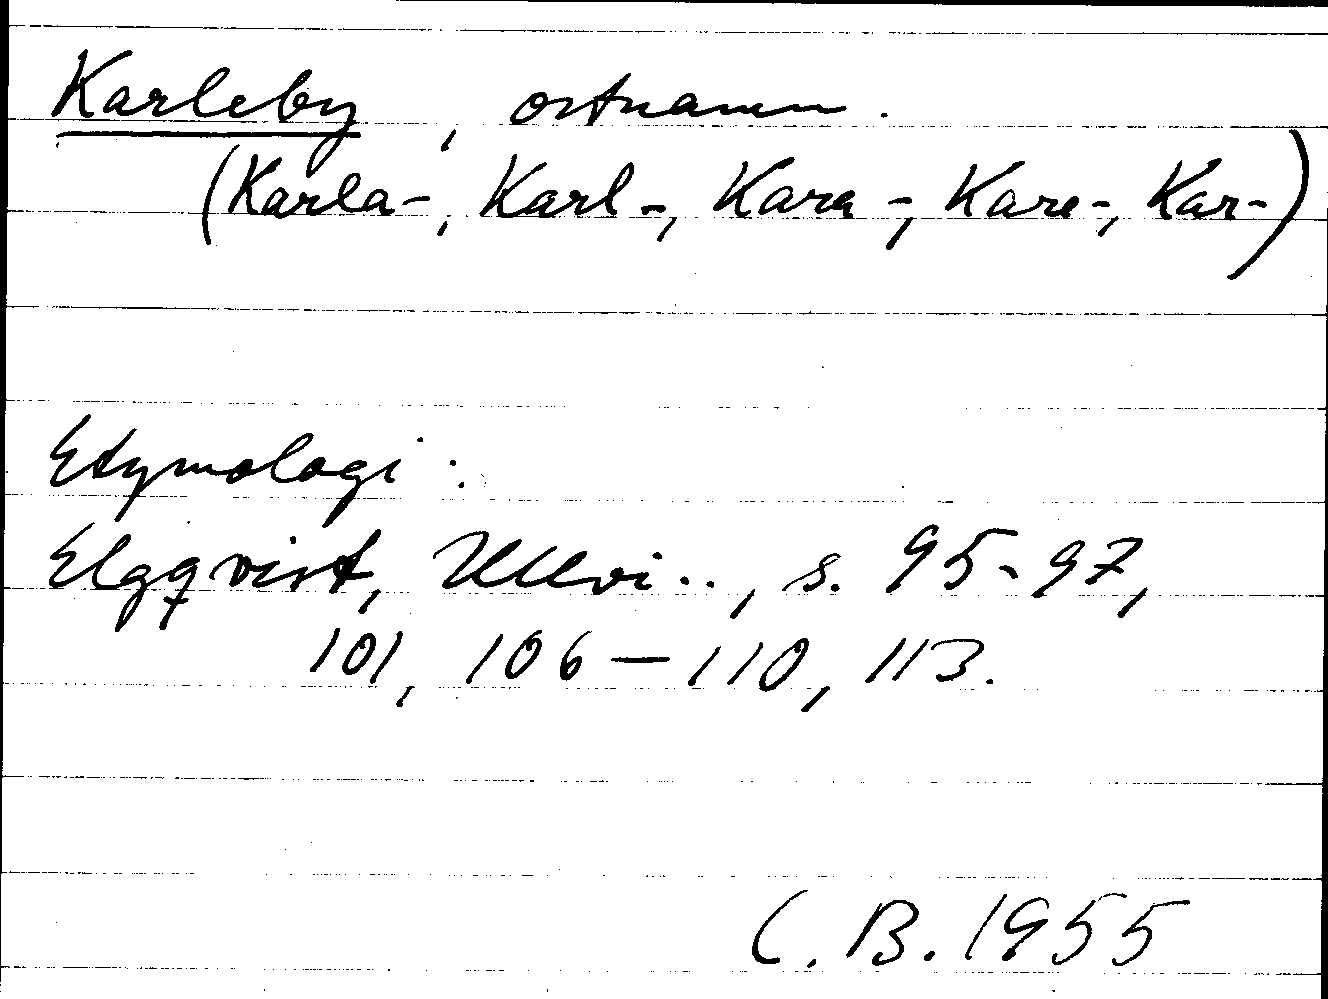 Karleby, ortnamn.
(Karla-, Karl-, Kara-, Kare-, Kar-)
Etymologi:
Elgqvist, Ullvi.., s. 95-97,
101, 106—110, 113.
C. B. 1955